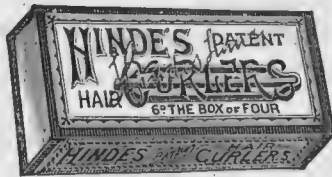 HINDE'S PATENT
HAIR CURLERS
6D THE BOX OF FOUR
HINDES PATT HAIR CURLERS